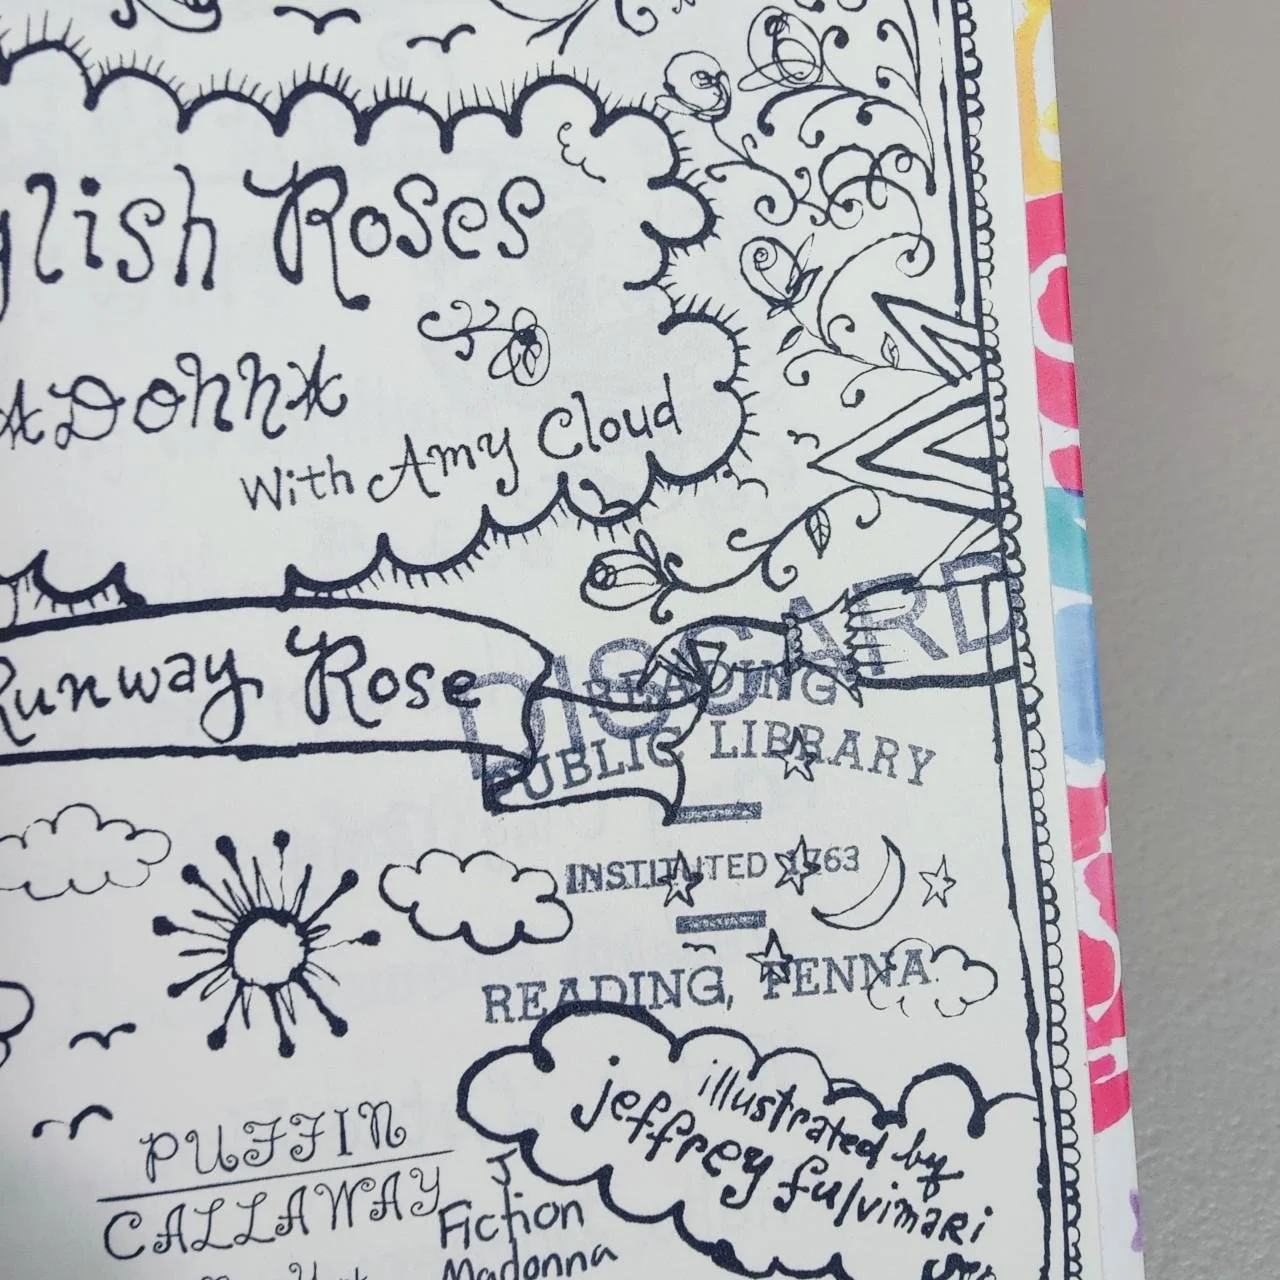 glish Roses
ADONNA
With Amy Cloud
Runway Rose
DISCARD
READING
PUBLIC LIBRARY
INSTITUTED 1763
READING, PENNA.
illustrated by
jeffrey fulvimari
PUFFIN
CALLAWAY
J
Fiction
Madonna